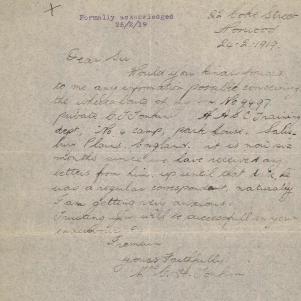 Formally acknowledged
25/2/19
Coke Street
Norwood
24-2-1919.
Dear Sir
Would you kindly forward
to me any information possible concerning
the whereabouts of my son No 9497
private C J Tonkin A A S C Training
dept, No 4 camp, park house, Salis-
bury Plains, England. it is now six
months since we have received any
letters from him, up until that time he
was a regular correspondent, naturally
I am getting very anxious.
Trusting you will be successfull in your
I remain
yours Faithfully
Tonkin